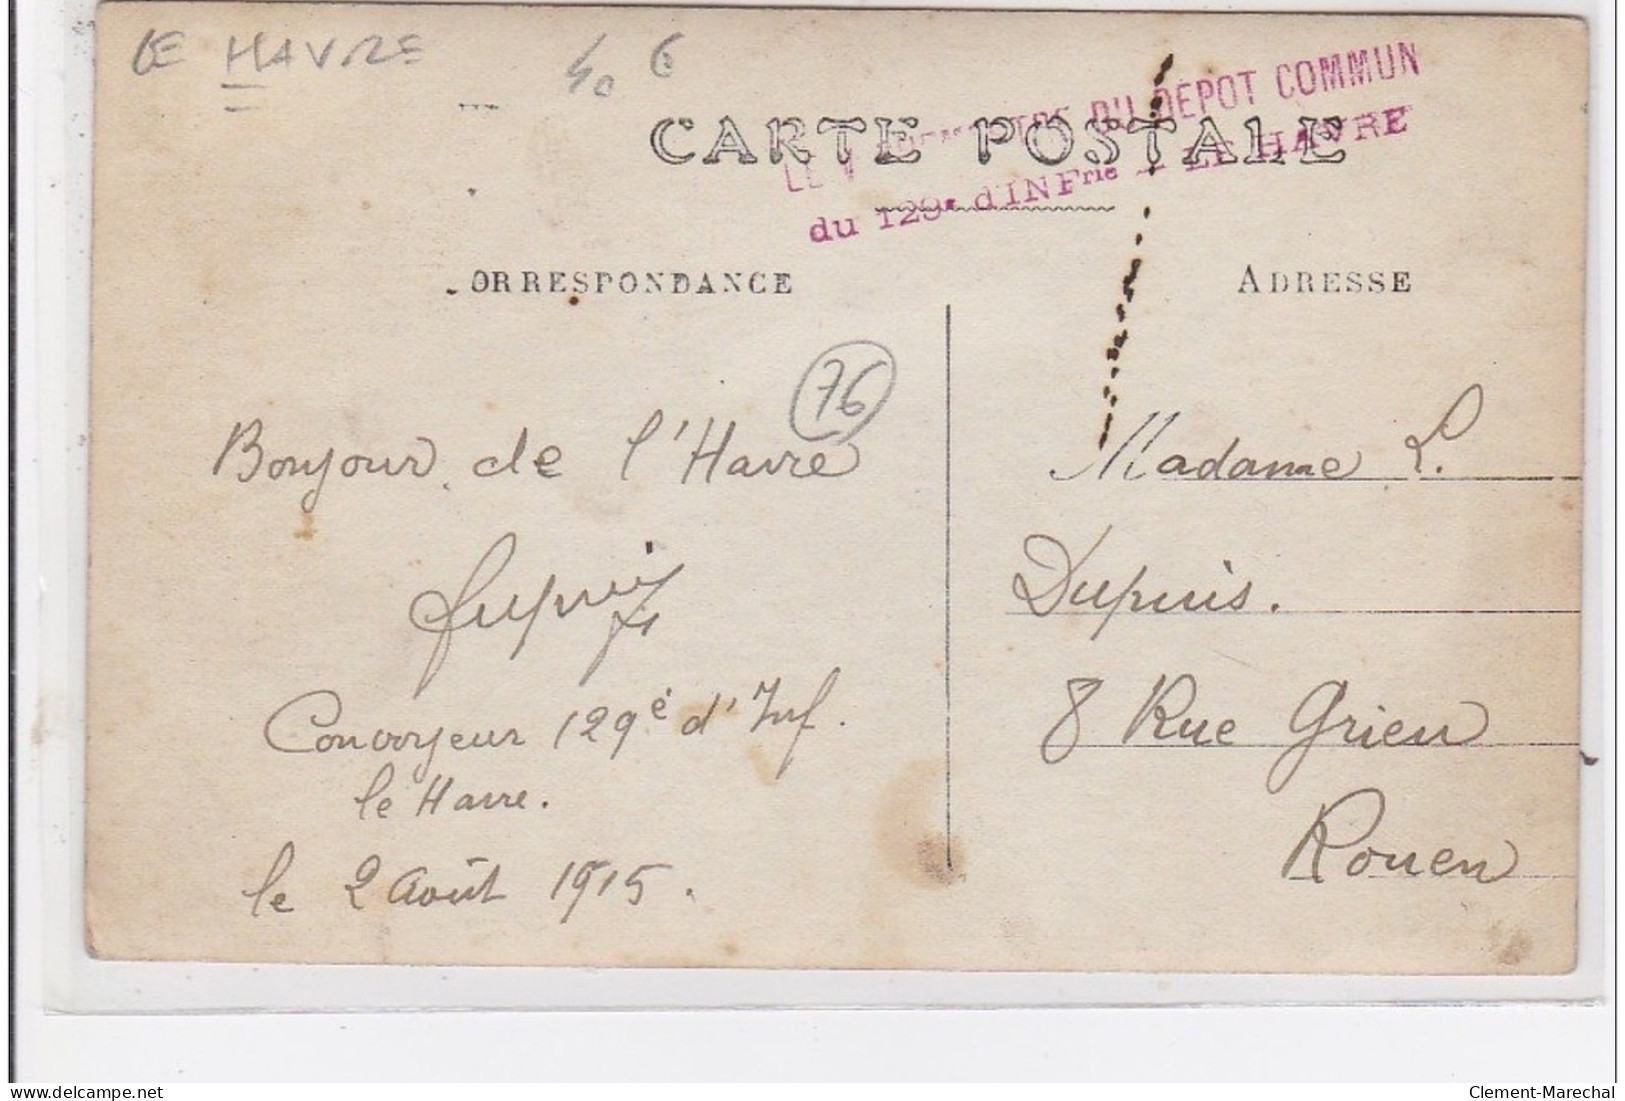 LE HAVRE
40 €
DU DEPOT COMMUN
CARTE POSTALE
du 129e d'INFrie — LE HAVRE
ORRESPONDANCE
ADRESSE
76
Bonjour de l'Havre
Dupuis
Convoyeur 129é d'Inf.
le Havre.
le 2 Août 1915.
Madame L.
Dupuis.
8 Rue Grieu
Rouen
delcampe.net
Clement-Marechal